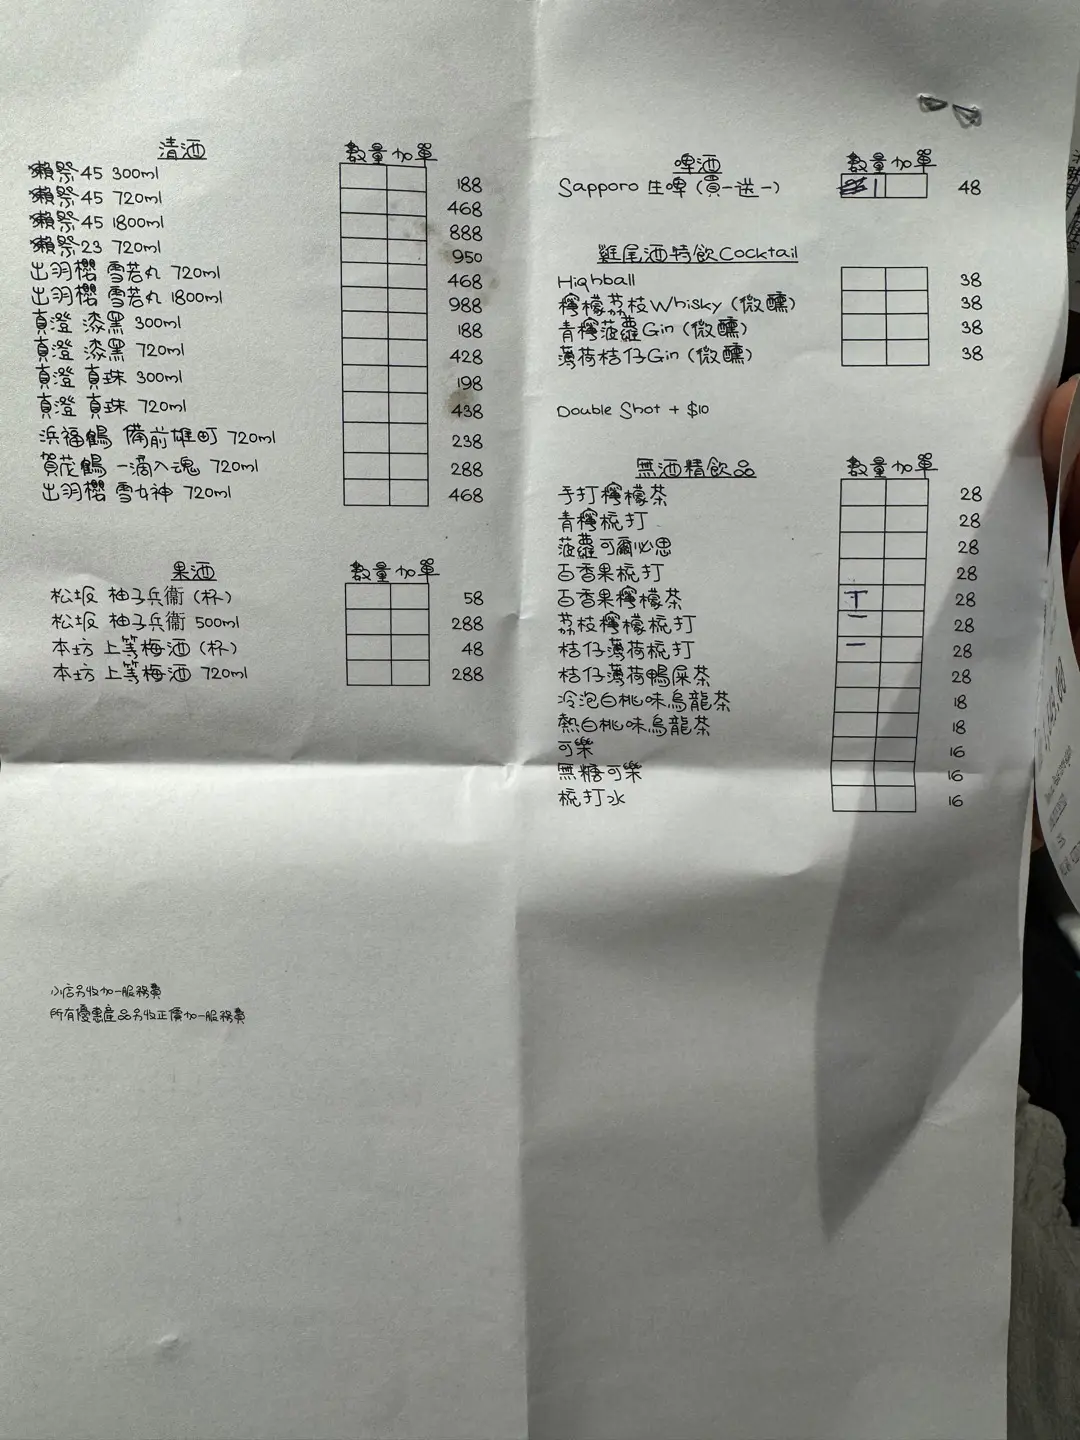 清酒
數量 加單
獺祭45 300ml 188
獺祭45 720ml 468
獺祭45 1800ml 888
獺祭23 720ml 950
出羽櫻 雪若丸 720ml 468
出羽櫻 雪若丸 1800ml 988
真澄 漆黑 300ml 188
真澄 漆黑 720ml 428
真澄 真珠 300ml 198
真澄 真珠 720ml 438
浜福鶴 備前雄町 720ml 238
賀茂鶴 一滴入魂 720ml 288
出羽櫻 雪女神 720ml 468
果酒
數量 加單
松坂 柚子兵衛 (杯) 58
松坂 柚子兵衛 500ml 288
本坊 上等梅酒 (杯) 48
本坊 上等梅酒 720ml 288
小店另收加一服務費
所有優惠產品另收正價加一服務費
啤酒
數量 加單
Sapporo 生啤 (買一送一) 1 48
雞尾酒特飲Cocktail
Highball 38
檸檬荔枝Whisky (微醺) 38
青檸菠蘿Gin (微醺) 38
薄荷桔仔Gin (微醺) 38
Double Shot + $10
無酒精飲品
數量 加單
手打檸檬茶 28
青檸梳打 28
菠蘿可爾必思 28
百香果梳打 28
百香果檸檬茶 T 28
荔枝檸檬梳打 一 28
桔仔薄荷梳打 一 28
桔仔薄荷鴨屎茶 28
冷泡白桃味烏龍茶 18
熱白桃味烏龍茶 18
可樂 16
無糖可樂 16
梳打水 16